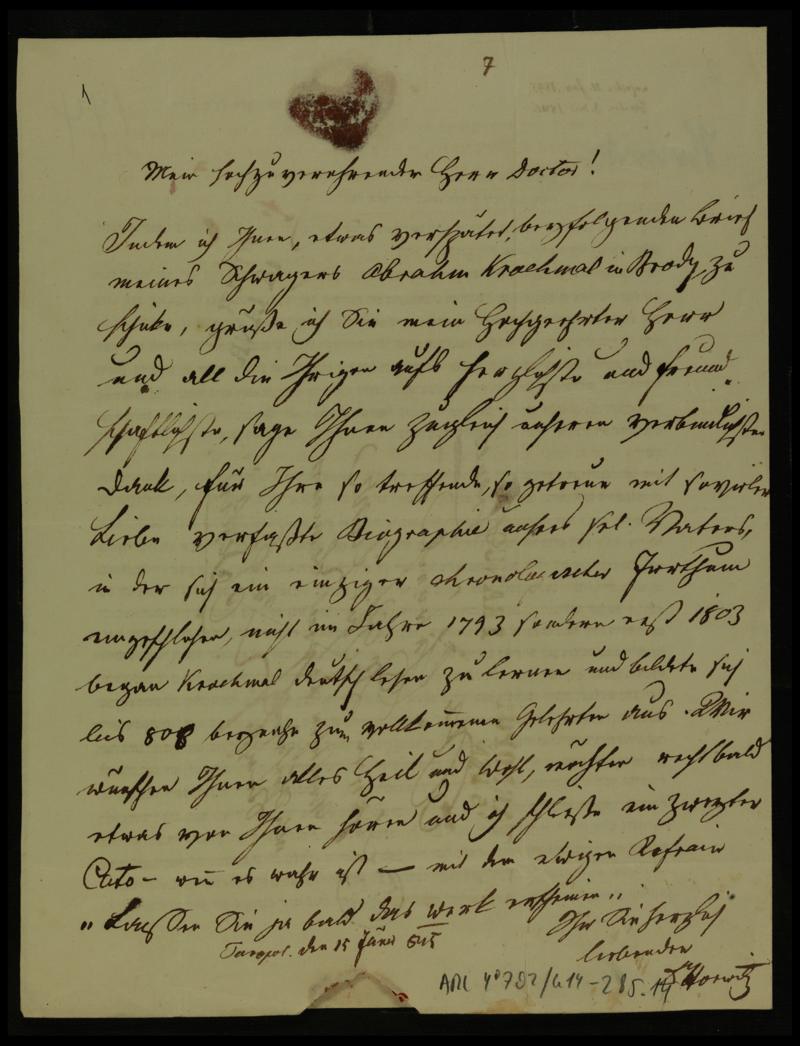 7
1
Mein hochzuverehrender Herr Doctor!
Indem ich Ihnen, etwas verspätet, beyfolgenden Brief
meines Schwagers Abraham Krochmal in Brody, zu
schicke, grüße ich Sie mein Hochgeehrter Herr
und all die Ihrigen aufs herzlichste und freund
schaftlichste, sage Ihnen zugleich unseren verbindlichsten
Dank, für Ihre so treffende, so getreue mit so vieler
Liebe verfaßte Biographie unsers sel. Vaters,
in der sich ein einziger chronologischer Irrthum
eingeschlichen, nicht im Jahre 1793 sondern erst 1803
began Krochmal deutsch lesen zu lernen und bildete sich
bis 808 beynahe zum vollkommenen Gelehrten aus. Wir
wünschen Ihnen alles Heil und Wohl, möchten recht bald
etwas von Ihnen hören und ich schließe ein zweyter
Cato – wie es wahr ist — mit dem ewigen Refrain
"Lassen Sie ja bald das Werk erscheinen"
Ihr Sie herzlich
Tarnopol. den 15 Juni 845
liebender
Horowitz
ARC 4° 792/G14-285.14